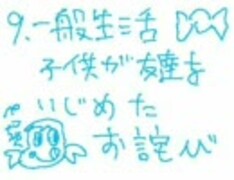 9.一般生活
子供が友達を
いじめた
お詫び